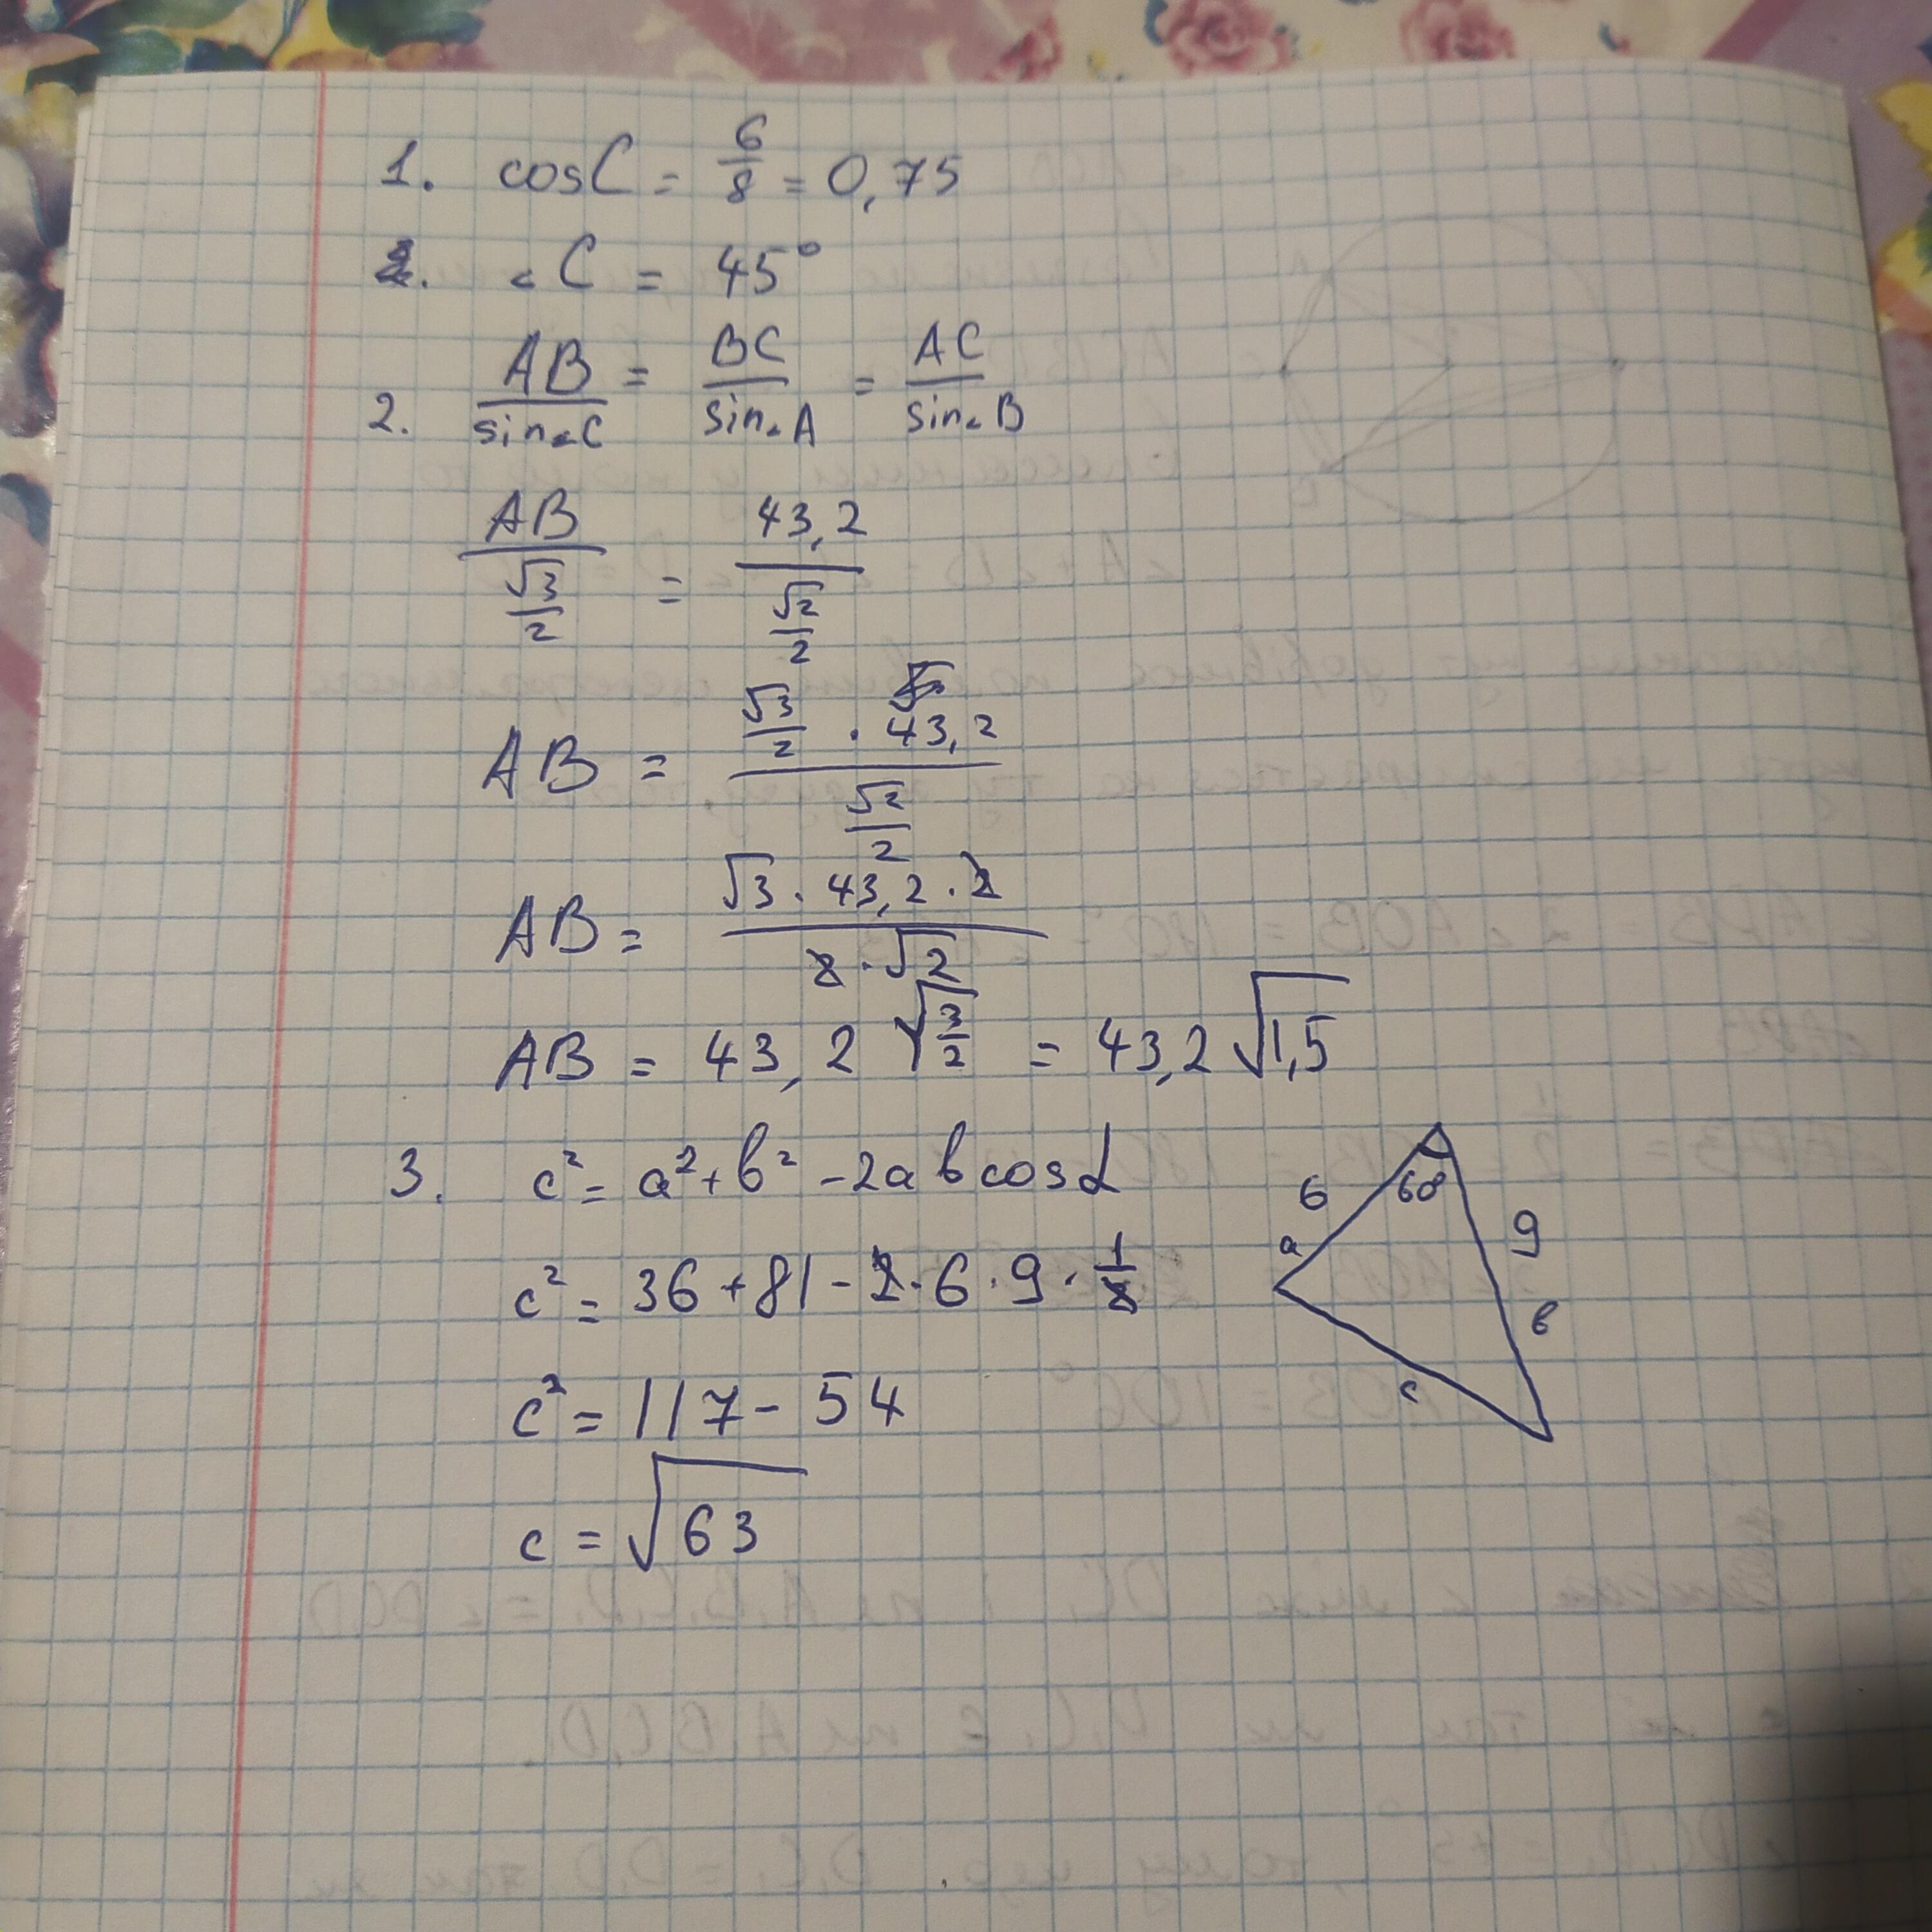 1. cosC = 6/8 = 0,75
2. ∠C = 45°
2. AB/sin∠C = BC/sin∠A = AC/sin∠B
AB/(√3/2) = 43,2/(√2/2)
AB = (√3/2 · 43,2)/(√2/2)
AB = (√3 · 43,2 · 2)/(2 · √2)
AB = 43,2 √(3/2) = 43,2 √1,5
3. c² = a² + b² - 2ab cosα
c² = 36 + 81 - 2 · 6 · 9 · 1/2
c² = 117 - 54
c = √63
60°
6
9
a
b
c